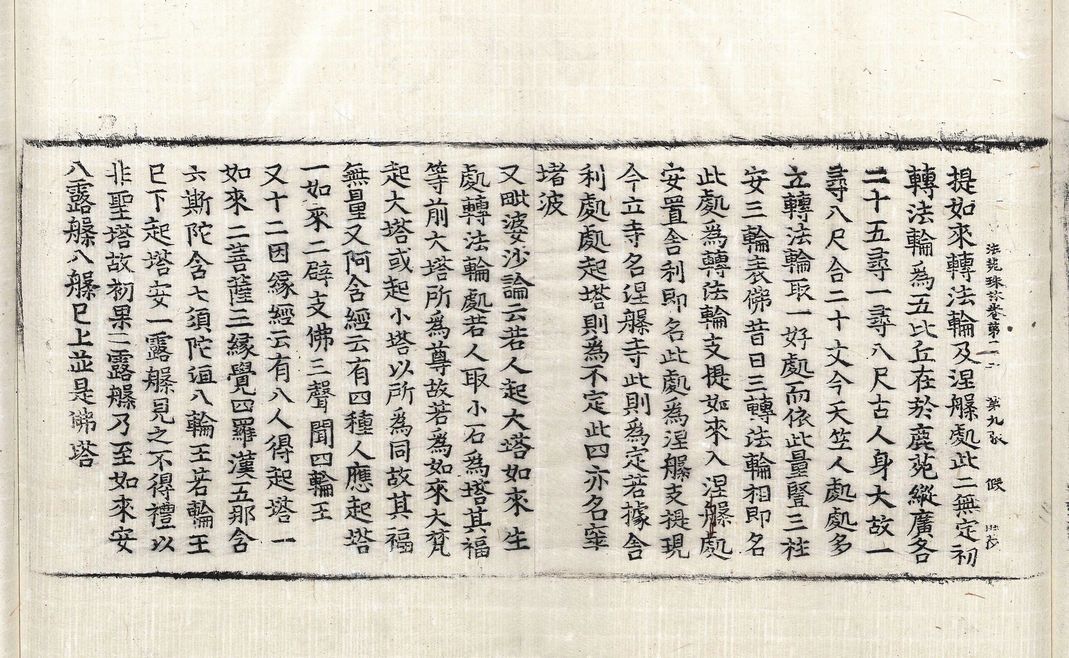 法苑珠林卷第 第九張 假
提如來轉法輪及涅槃處此二無定初
轉法輪為五比丘在於鹿苑縱廣各
二十五尋一尋八尺古人身大故一
尋八尺合二十丈今天竺人處處多
立轉法輪取一好處而依此量豎三柱
安三輪表佛昔日三轉法輪相即名
此處為轉法輪支提如來入涅槃處
安置舍利即名此處為涅槃支提現
今立寺名涅槃寺此則為定若據舍
利處處起塔則為不定此四亦名窣
堵波
又毗婆沙論云若人起大塔如來生
處轉法輪處若人取小石為塔其福
等前大塔所為尊故若為如來大梵
起大塔或起小塔以所為同故其福
無量又阿含經云有四種人應起塔
一如來二辟支佛三聲聞四輪王
又十二因緣經云有八人得起塔一
如來二菩薩三緣覺四羅漢五那含
六斯陀含七須陀洹八輪王若輪王
已下起塔安一露槃見之不得禮以
非聖塔故初果二露槃乃至如來安
八露槃八槃已上並是佛塔